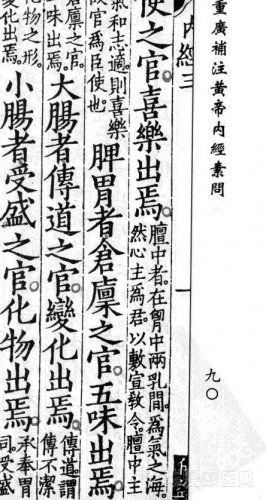 重廣補注黃帝內經素問
九〇
內經三
一
使之官。喜樂出焉。
膻中者。在胷中兩乳間。為氣之海。
然心主為君。以敷宣教令。膻中主
氣和志適。則喜樂
故官為臣使也。
脾胃者倉廩之官。五味出焉。
廩之官。
味出焉。
大腸者傳道之官。變化出焉。
傳道。謂
傳不潔
變化出焉。
化物之形。
小腸者受盛之官。化物出焉。
承奉胃
司。受盛